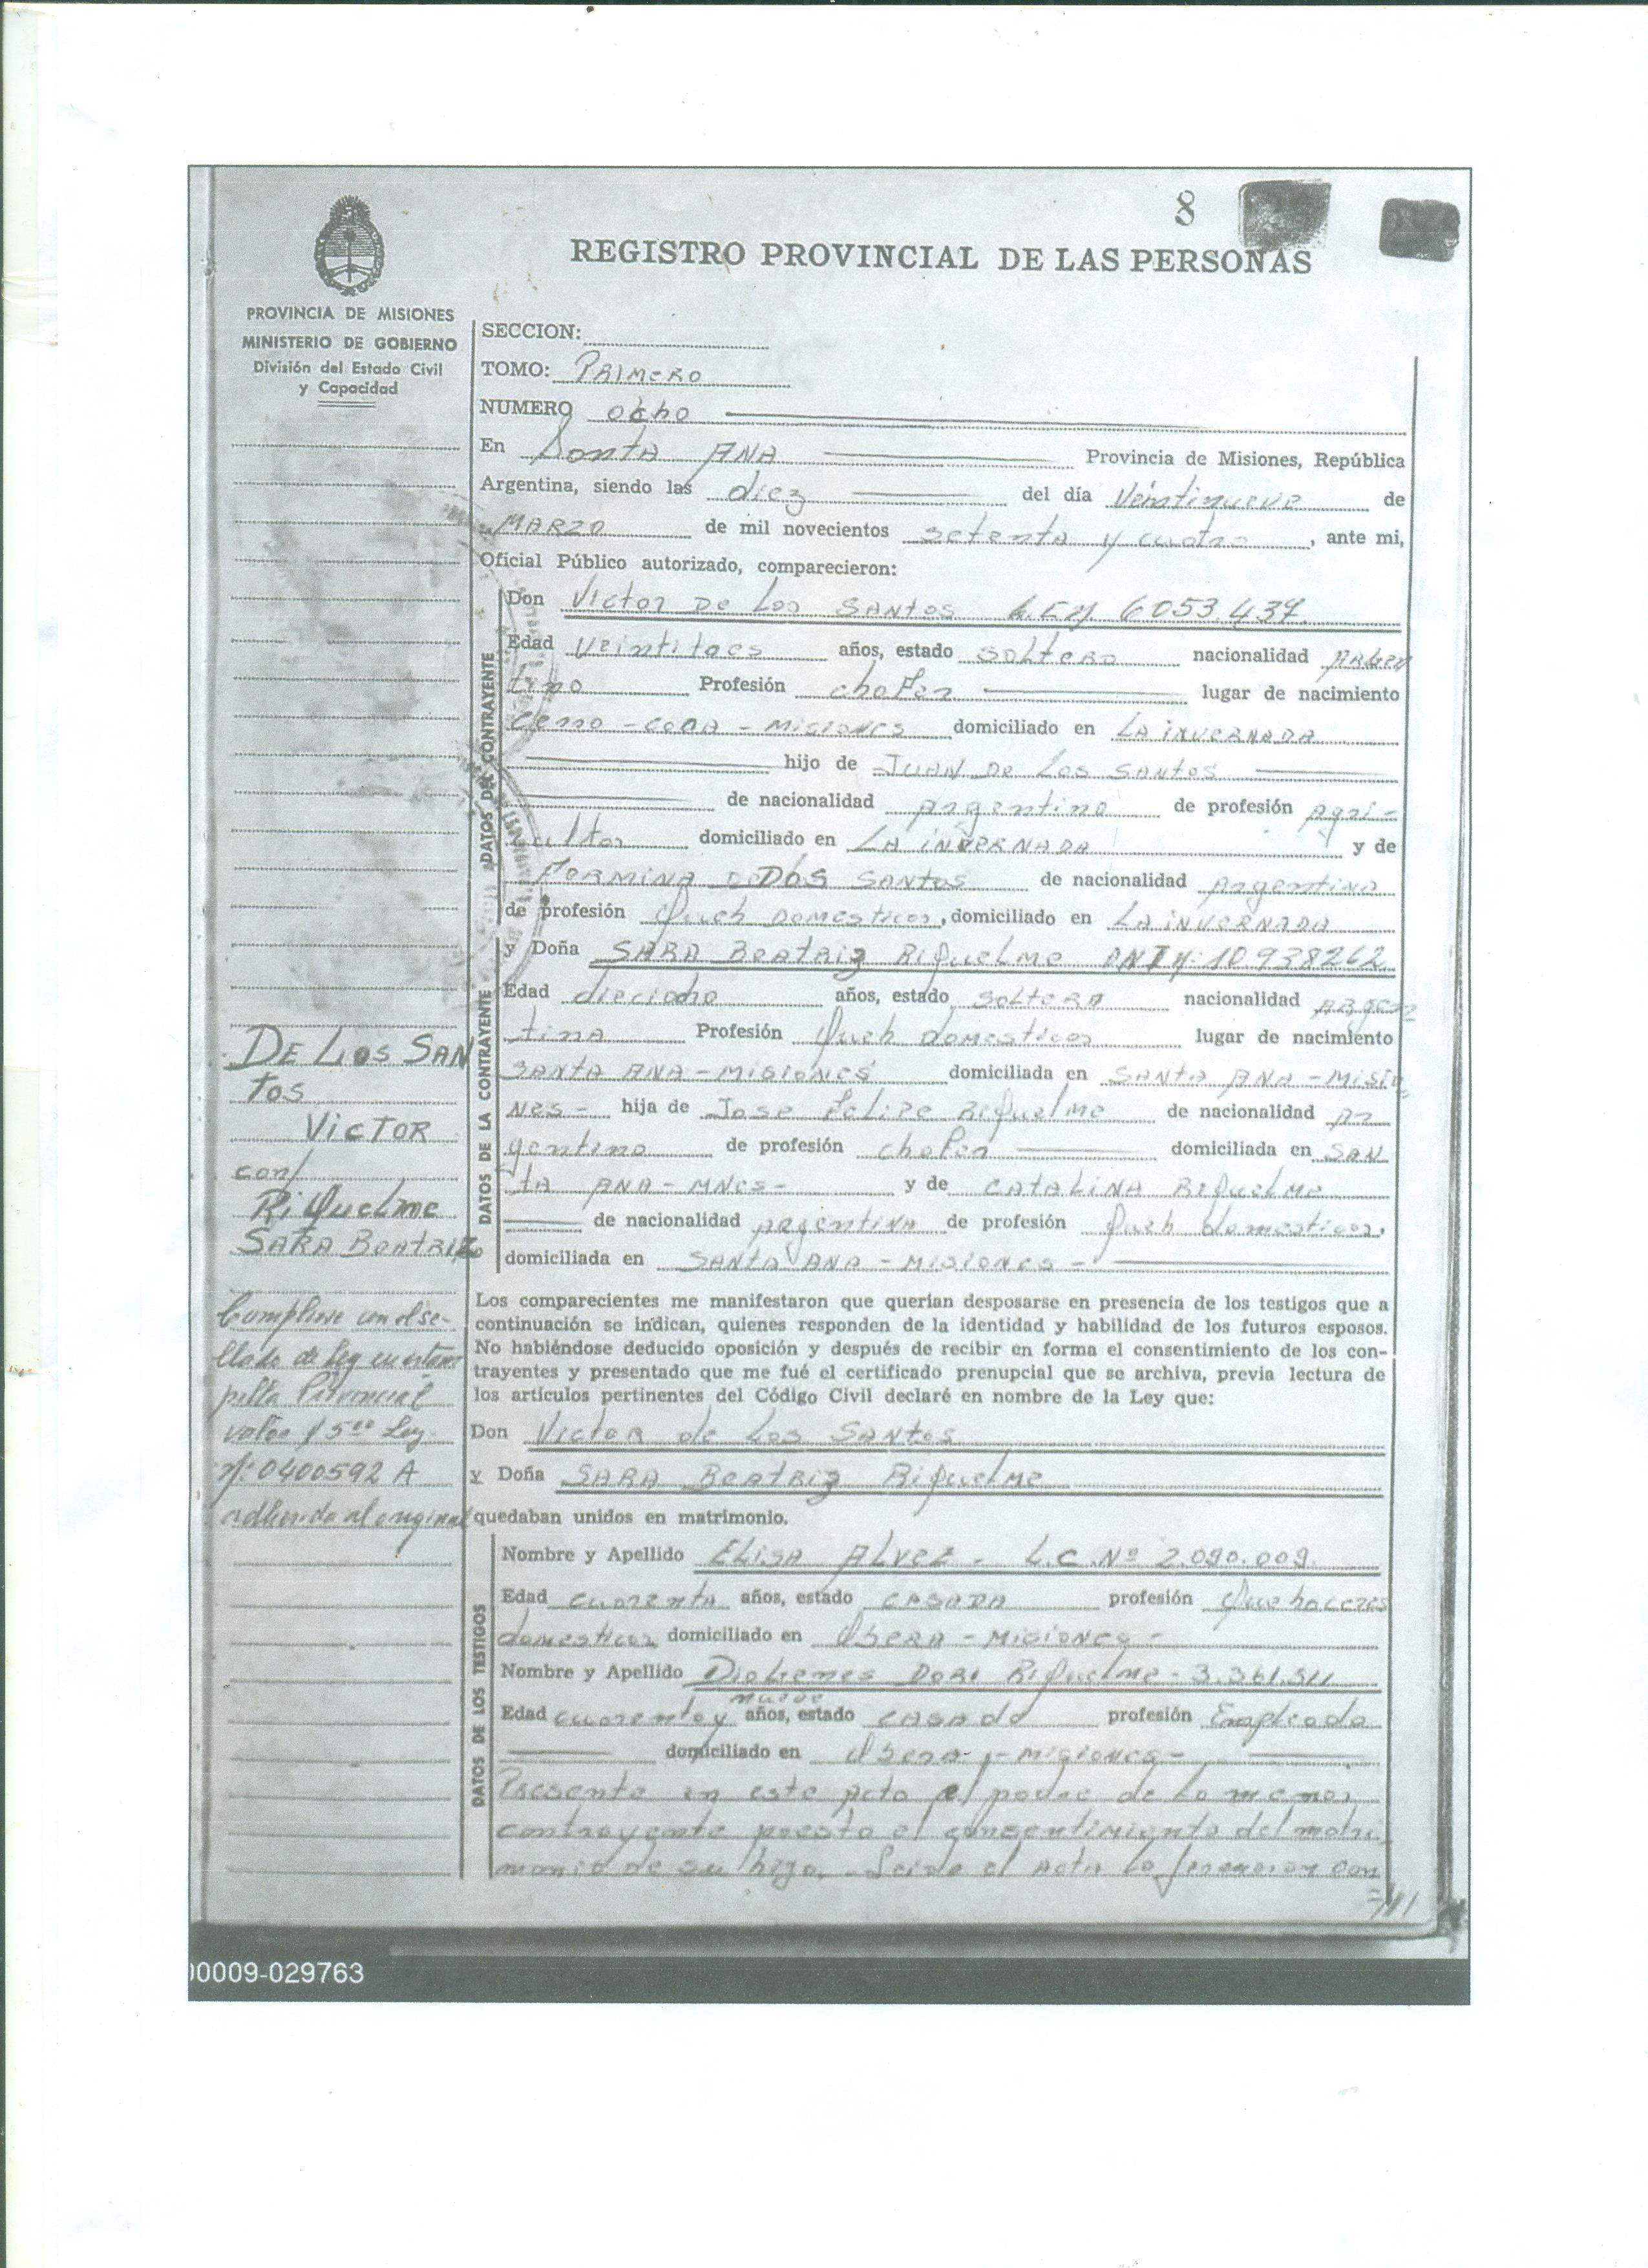 8
REGISTRO PROVINCIAL DE LAS PERSONAS
PROVINCIA DE MISIONES
MINISTERIO DE GOBIERNO
División del Estado Civil
y Capacidad
SECCION:
TOMO: PRIMERO
NUMERO ocho
En Santa ANA Provincia de Misiones, República
Argentina, siendo las diez del día Veintinueve de
MARZO de mil novecientos setenta y cuatro, ante mi,
Oficial Público autorizado, comparecieron:
DATOS DEL CONTRAYENTE
Don Victor De Los SANtos 6053.437
Edad Veintitres años, estado soltero nacionalidad ARgen
tino Profesión chofer lugar de nacimiento
Cerro - CORA - MISIONES domiciliado en LA INVERNADA
hijo de JUAN De Los SANtos
de nacionalidad Argentino de profesión Agri-
cultor domiciliado en LA INVERNADA y de
FERMINA DOS SANtos de nacionalidad Argentina
de profesión Queh Domesticos, domiciliado en LA INVERNADA
DATOS DE LA CONTRAYENTE
y Doña SARA Beatriz Riquelme DNI Nº: 10938262
Edad dieciocho años, estado soltera nacionalidad Argen
tina Profesión Queh domesticos lugar de nacimiento
SANTA ANA - MISIONES domiciliada en SANTA ANA - MISIO
NES - hija de Jose Felipe Riquelme de nacionalidad Ar
gentino de profesión chofer domiciliada en SAN
tA ANA - MNES - y de CATALINA Riquelme
de nacionalidad Argentina de profesión Queh domesticos,
domiciliada en SANTA ANA - MISIONES -
DE LOS SAN
TOS
VICTOR
con/
RiQuelme
SARA BeatRIZ
Cumplese con el se-
llado de Ley en estam
pilla Provincial
valor $ 5⁰⁰ Ley
Nº: 0400592 A
adherida al original
Los comparecientes me manifestaron que querían desposarse en presencia de los testigos que a
continuación se indican, quienes responden de la identidad y habilidad de los futuros esposos.
No habiéndose deducido oposición y después de recibir en forma el consentimiento de los con-
trayentes y presentado que me fué el certificado prenupcial que se archiva, previa lectura de
los artículos pertinentes del Código Civil declaré en nombre de la Ley que:
Don Victor de Los SANtos
y Doña SARA Beatriz Riquelme
quedaban unidos en matrimonio.
DATOS DE LOS TESTIGOS
Nombre y Apellido ELISA ALVEZ - L.C. Nº 2.090.009
Edad cuarenta años, estado CASADA profesión Quehaceres
domesticos domiciliado en OBERA - MISIONES -
Nombre y Apellido Diogenes DORI Riquelme - 3.361.311
nueve
Edad cuarenta y años, estado CASADO profesión Empleado
domiciliado en Obera - MISIONES -
Presente en este Acto el padre de la menor
contrayente presta el consentimiento del matri
monio de su hija. - Leida el Acta la firmaron con
=///
00009-029763